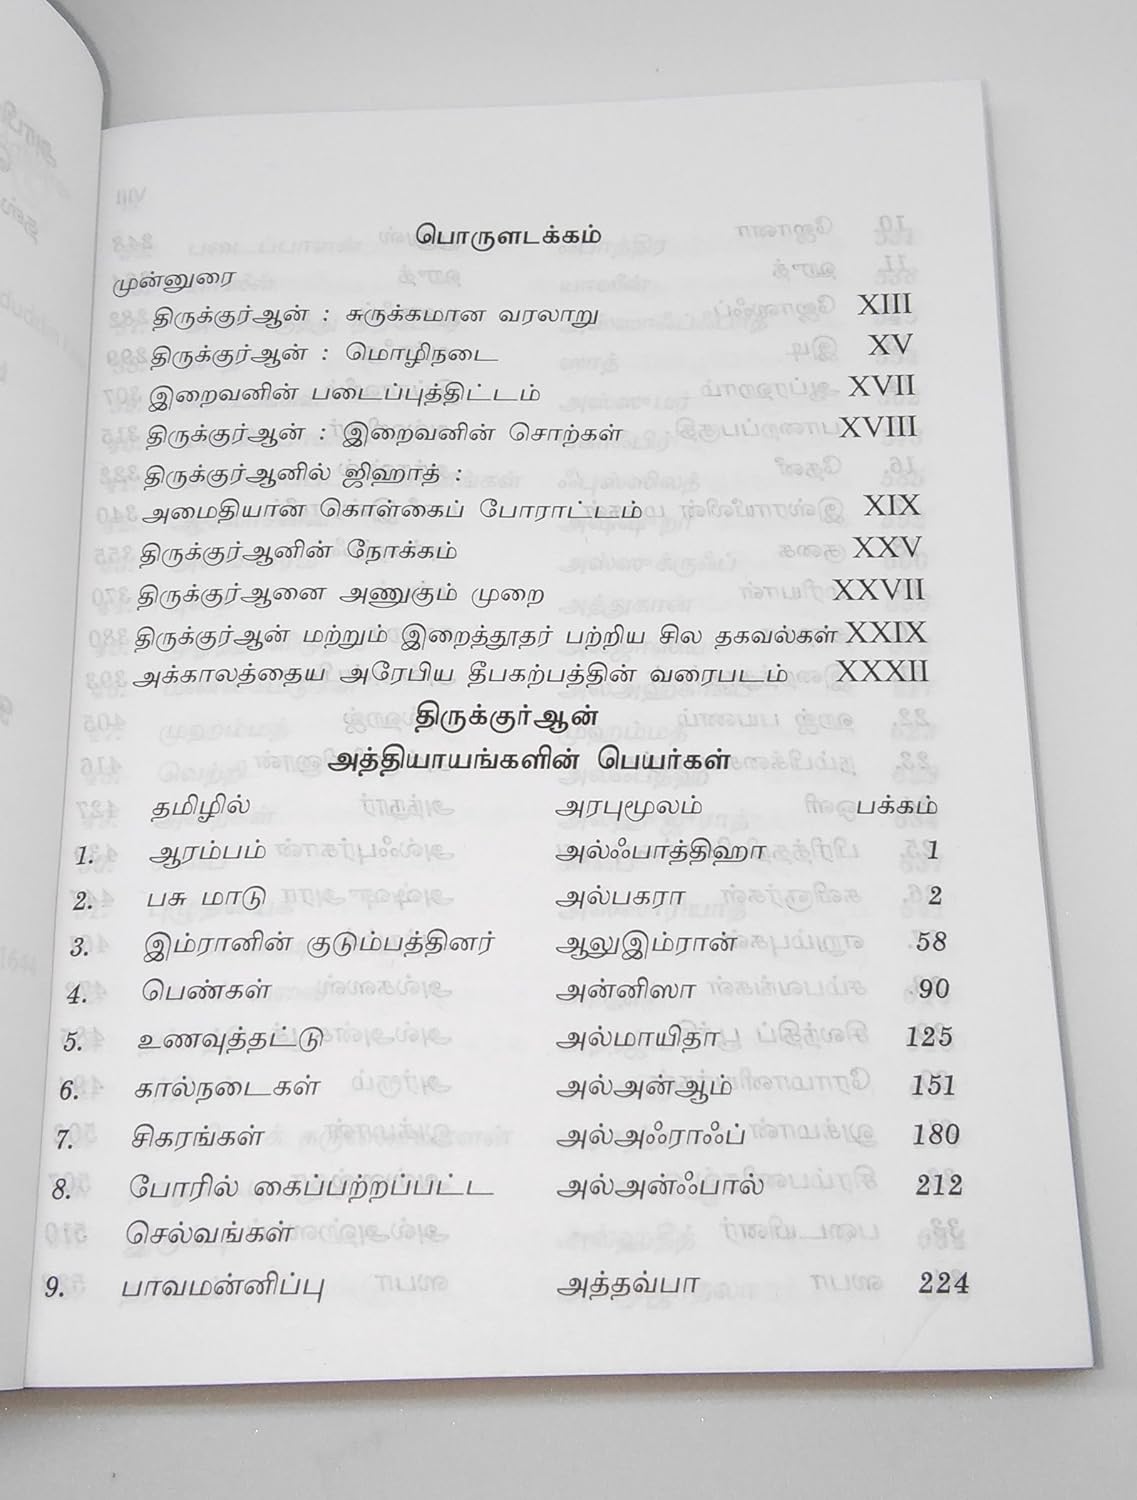 பொருளடக்கம்
முன்னுரை
திருக்குர்ஆன் : சுருக்கமான வரலாறு XIII
திருக்குர்ஆன் : மொழிநடை XV
இறைவனின் படைப்புத்திட்டம் XVII
திருக்குர்ஆன் : இறைவனின் சொற்கள் XVIII
திருக்குர்ஆனில் ஜிஹாத் :
அமைதியான கொள்கைப் போராட்டம் XIX
திருக்குர்ஆனின் நோக்கம் XXV
திருக்குர்ஆனை அணுகும் முறை XXVII
திருக்குர்ஆன் மற்றும் இறைத்தூதர் பற்றிய சில தகவல்கள் XXIX
அக்காலத்தைய அரேபிய தீபகற்பத்தின் வரைபடம் XXXII
திருக்குர்ஆன்
அத்தியாயங்களின் பெயர்கள்
தமிழில் அரபுமூலம் பக்கம்
1. ஆரம்பம் அல்ஃபாத்திஹா 1
2. பசு மாடு அல்பகரா 2
3. இம்ரானின் குடும்பத்தினர் ஆலுஇம்ரான் 58
4. பெண்கள் அன்னிஸா 90
5. உணவுத்தட்டு அல்மாயிதா 125
6. கால்நடைகள் அல்அன்ஆம் 151
7. சிகரங்கள் அல்அஃராஃப் 180
8. போரில் கைப்பற்றப்பட்ட அல்அன்ஃபால் 212
செல்வங்கள்
9. பாவமன்னிப்பு அத்தவ்பா 224